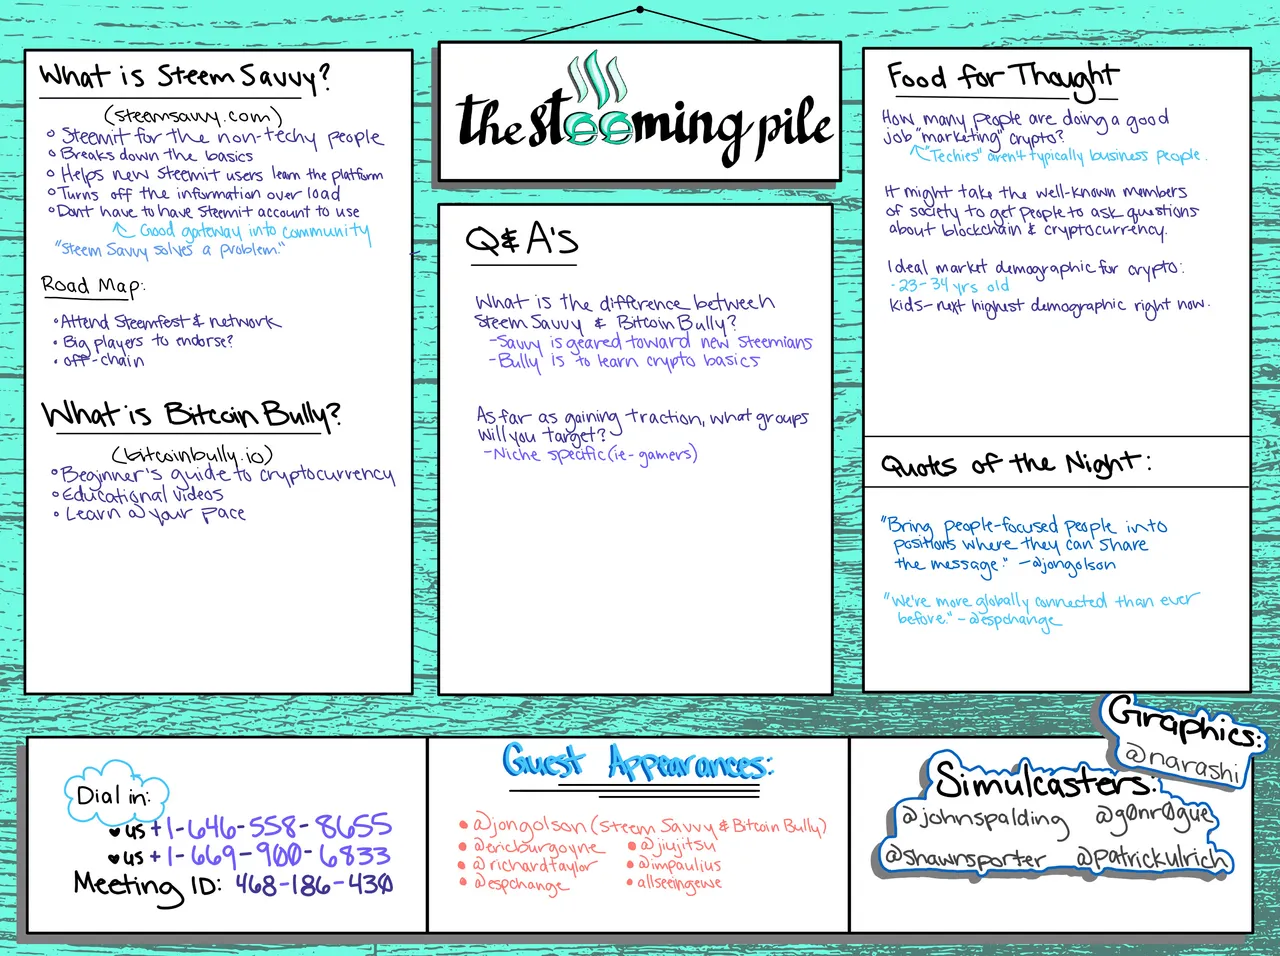 What is Steem Savvy?
(steemsavvy.com)
Steemit for the non-techy people
Breaks down the basics
Helps new Steemit users learn the platform
Turns off the information over load
Dont have to have Steemit account to use
Good gateway into community
"Steem Savvy solves a problem."
Road Map:
Attend Steemfest & network
Big players to endorse?
off-chain
What is Bitcoin Bully?
(bitcoinbully.io)
Beginner's guide to cryptocurrency
Educational videos
Learn @ your pace
the steeming pile
Q & A's
What is the difference between
Steem Savvy & Bitcoin Bully?
-Savvy is geared toward new Steemians
-Bully is to learn crypto basics
As far as gaining traction, what groups
will you target?
-Niche specific (ie-gamers)
Food for Thought
How many people are doing a good
job "marketing" crypto?
"Techies" aren't typically business people.
It might take the well-known members
of society to get people to ask questions
about blockchain & cryptocurrency.
Ideal market demographic for crypto:
-23-34 yrs old
Kids-next highest demographic right now.
Quotes of the Night:
"Bring people-focused people into
positions where they can share
the message." -@jongolson
"We're more globally connected than ever
before." -@espchange
Dial in:
us +1-646-558-8655
us +1-669-900-6833
Meeting ID: 468-186-430
Guest Appearances:
@jongolson (Steem Savvy & Bitcoin Bully)
@ericburgoyne
@jiujitsu
@richardtaylor
@impaulius
@espchange
allseeingewe
Graphics:
@narashi
Simulcasters:
@johnspalding @g0nr0gue
@shawnsporter @patrickulrich